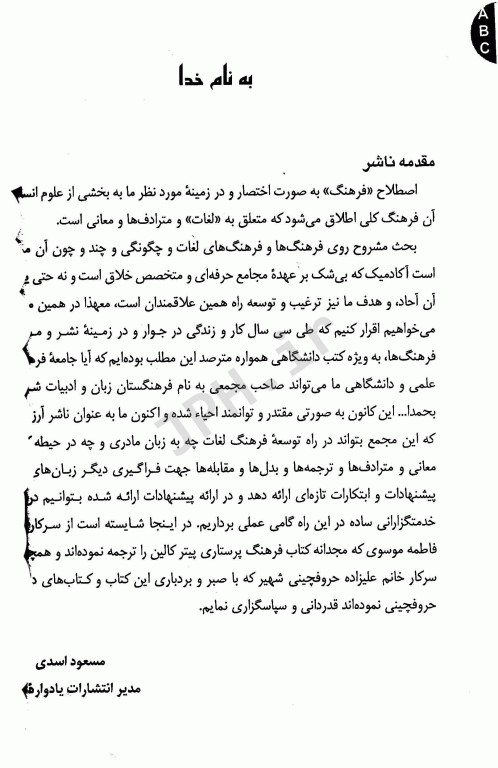 A
B
C
به نام خدا
مقدمه ناشر
اصطلاح «فرهنگ» به صورت اختصار و در زمینهٔ مورد نظر ما به بخشی از علوم
آن فرهنگ کلی اطلاق می‌شود که متعلق به «لغات» و مترادف‌ها و معانی است.
بحث مشروح روی فرهنگ‌ها و فرهنگ‌های لغات و چگونگی و چند و چون آن
است آکادمیک که بی‌شک بر عهدهٔ مجامع حرفه‌ای و متخصص خلاق است و نه حتی
آن آحاد، و هدف ما نیز ترغیب و توسعه راه همین علاقمندان است، معهذا در همین
می‌خواهیم اقرار کنیم که طی سی سال کار و زندگی در جوار و در زمینهٔ نشر و
فرهنگ‌ها، به ویژه کتب دانشگاهی همواره مترصد این مطلب بوده‌ایم که آیا جامعهٔ
علمی و دانشگاهی ما می‌تواند صاحب مجمعی به نام فرهنگستان زبان و ادبیات
بحمدا... این کانون به صورتی مقتدر و توانمند احیاء شده و اکنون ما به عنوان ناشر
که این مجمع بتواند در راه توسعهٔ فرهنگ لغات چه به زبان مادری و چه در حیطه
معانی و مترادف‌ها و ترجمه‌ها و بدل‌ها و مقابله‌ها جهت فراگیری دیگر زبان‌های
پیشنهادات و ابتکارات تازه‌ای ارائه دهد و در ارائه پیشنهادات ارائه شده بتوانیم در
خدمتگزارانی ساده در این راه گامی عملی برداریم. در اینجا شایسته است از سرکار
فاطمه موسوی که مجدانه کتاب فرهنگ پرستاری پیتر کالین را ترجمه نموده‌اند و
سرکار خانم علیزاده حروفچینی شهیر که با صبر و بردباری این کتاب و کتاب‌های
حروفچینی نموده‌اند قدردانی و سپاسگزاری نمایم.
مسعود اسدی
مدیر انتشارات یادواره
JPH.ir